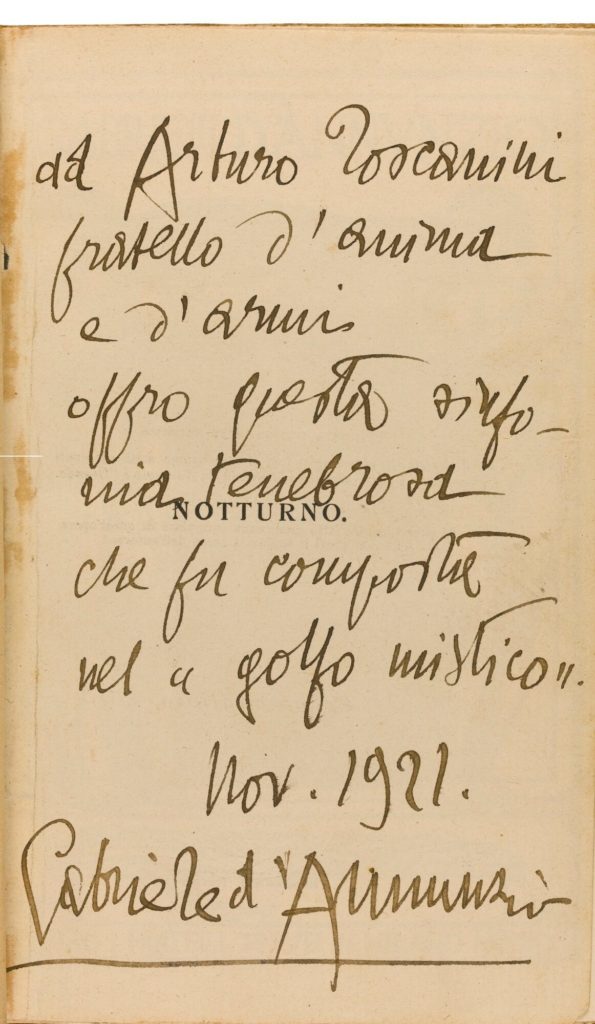 ad Arturo Toscanini
fratello d'anima
e d'armi
offro questa sinfo-
nia tenebrosa
NOTTURNO.
che fu composta
nel « golfo mistico ».
Nov. 1921.
Gabriele d'Annunzio